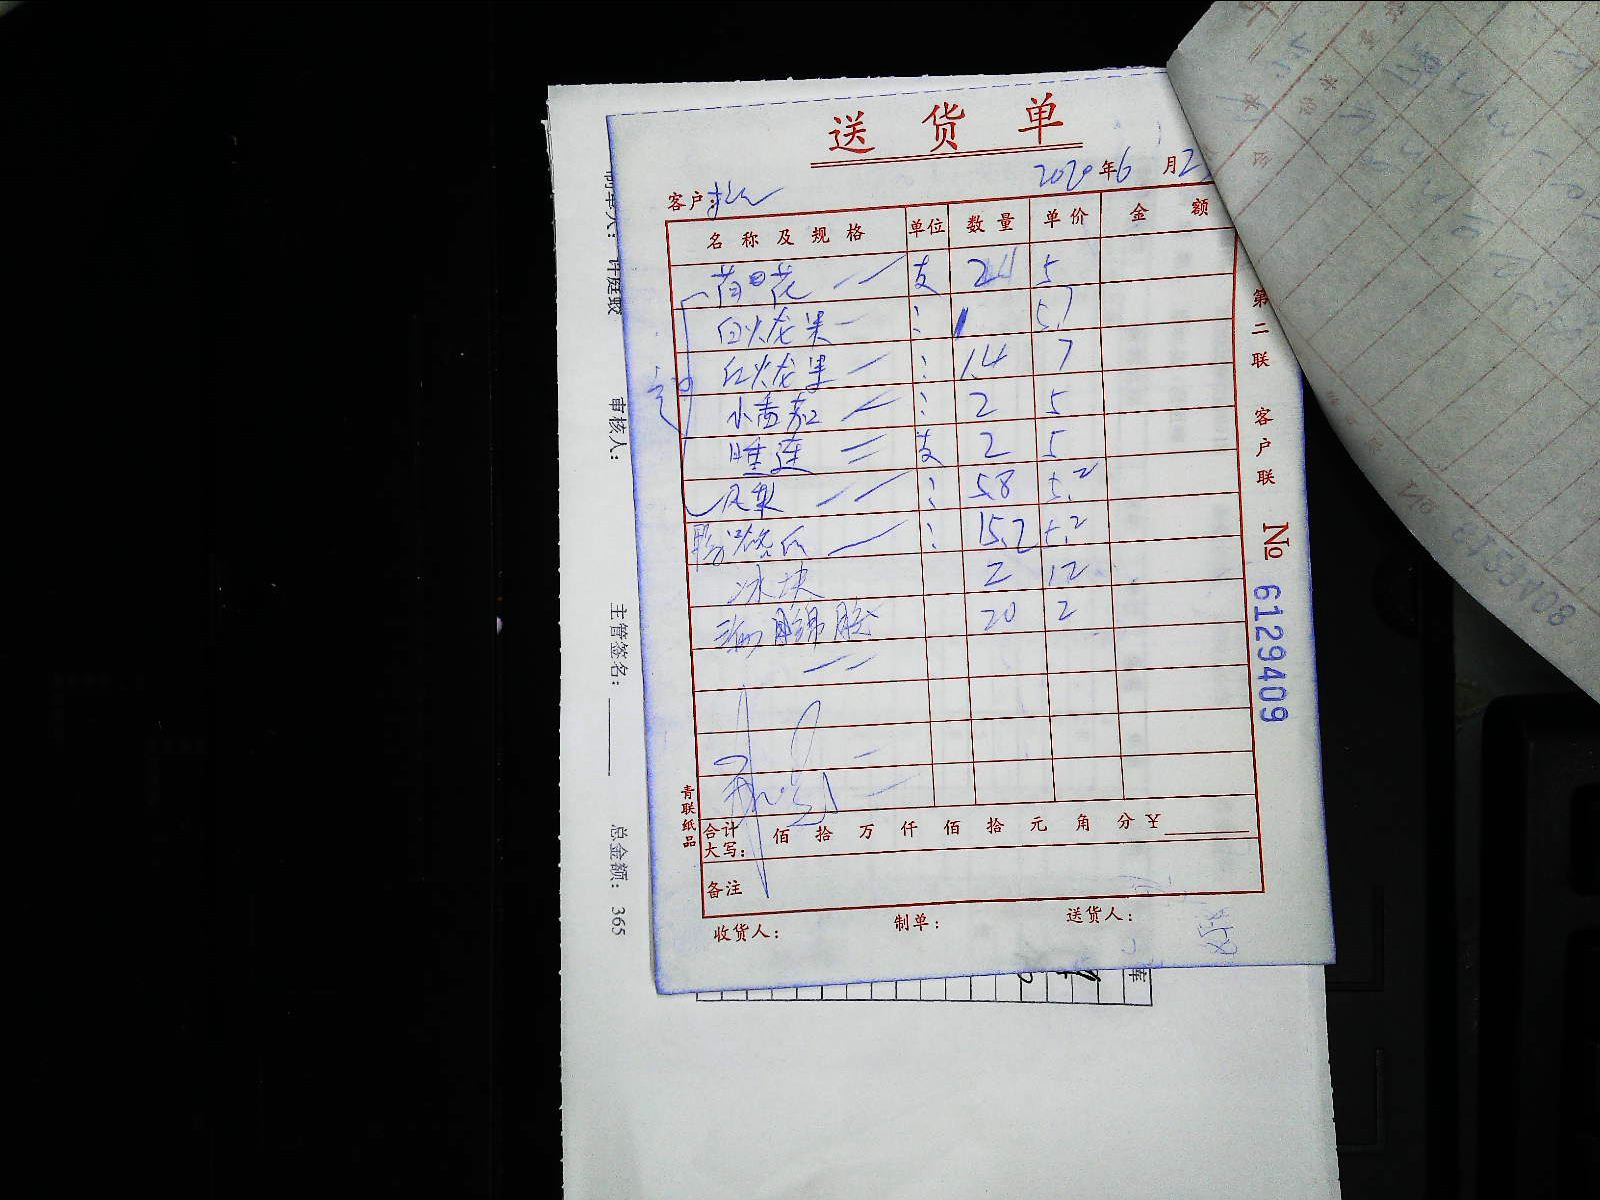 送货单
2020年6月2
客户
名称及规格 单位 数量 单价 金额
荷花 支 24 5
白火龙果 : 1 5.7
红火龙果 : 1.4 7
小番茄 : 2 5
睡莲 支 2 5
凤梨 : 5.8 5.2
哈密瓜 : 15.2 5.2
冰块 2 12
20 2
合计
大写: 佰 拾 万 仟 佰 拾 元 角 分 ¥
备注
收货人: 制单: 送货人:
青联纸品
第二联 客户联 No 6129409
制单人: 许庭毅 审核人: 主管签名: 总金额: 365
库